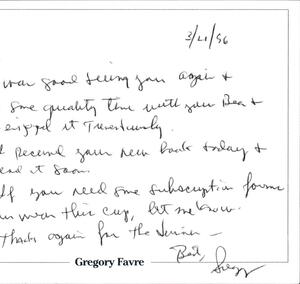 3/21/96
was good seeing you again &
some quality time with you Bea &
enjoyed it tremendously.
I received your new book today &
read it soon.
If you need some subscription forms
wear this cup, let me know.
thanks again for the dinner —
Best,
Gregg
Gregory Favre